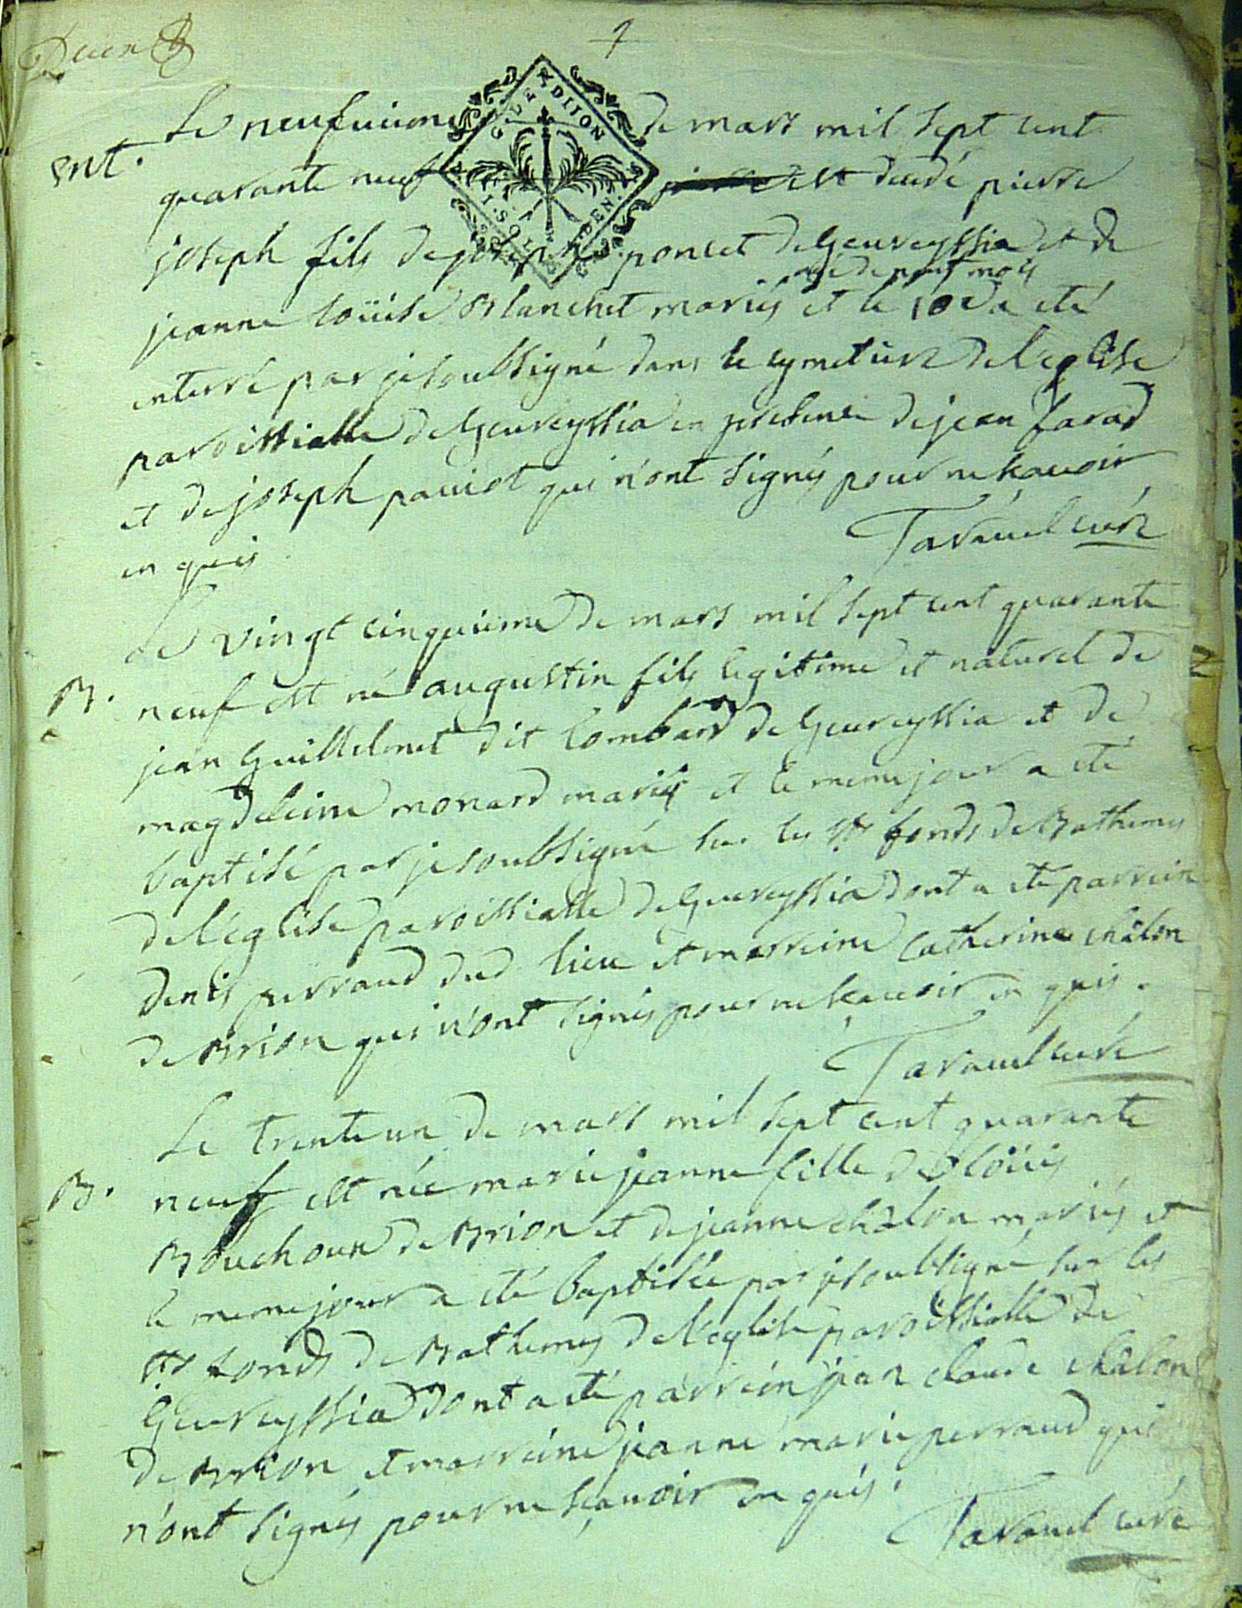 Le neufuieme de mars mil sept cent
ent. quarante neuf est decedé pierre
joseph fils de joseph poncet de Geureyssia et de
agé de neuf mois
jeanne loüise Blanchet mariés et le 10e a eté
enterré par je soubsigné dans le cymetiere de l'eglise
paroissialle de Geureyssia en presence de jean favad
et de joseph pauiot qui n'ont signés pour ne scauoir
en quis
Tavauel curé
Le vingt cinquieme de mars mil sept cent quarante
B. neuf est né augustin fils legitime et naturel de
jean Guillelmet dit Lombard de Geureyssia et de
magdeleine monard mariés et le meme jour a eté
baptisé par je soubsigné sur les sts fonds de Bathemes
de l'eglise paroissialle de Geureyssia dont a eté parrein
denis perraud dud. lieu et marreine Catherine châlon
de Brion qui n'ont signés pour ne scauoir en quis.
Tavauel curé
Le trente un de mars mil sept cent quarante
B. neuf est née marie jeanne fille de loüis
Bouchoux de Brion et de jeanne châlon mariés et
le meme jour a eté baptisée par je soubsigné sur les
sts fonds de Bathemes de l'eglise paroissialle de
Geureyssia dont a eté parrein jean claude châlon
de Brion et marreine jeanne marie perraud qui
n'ont signés pour ne sçauoir en quis.
Tavauel curé